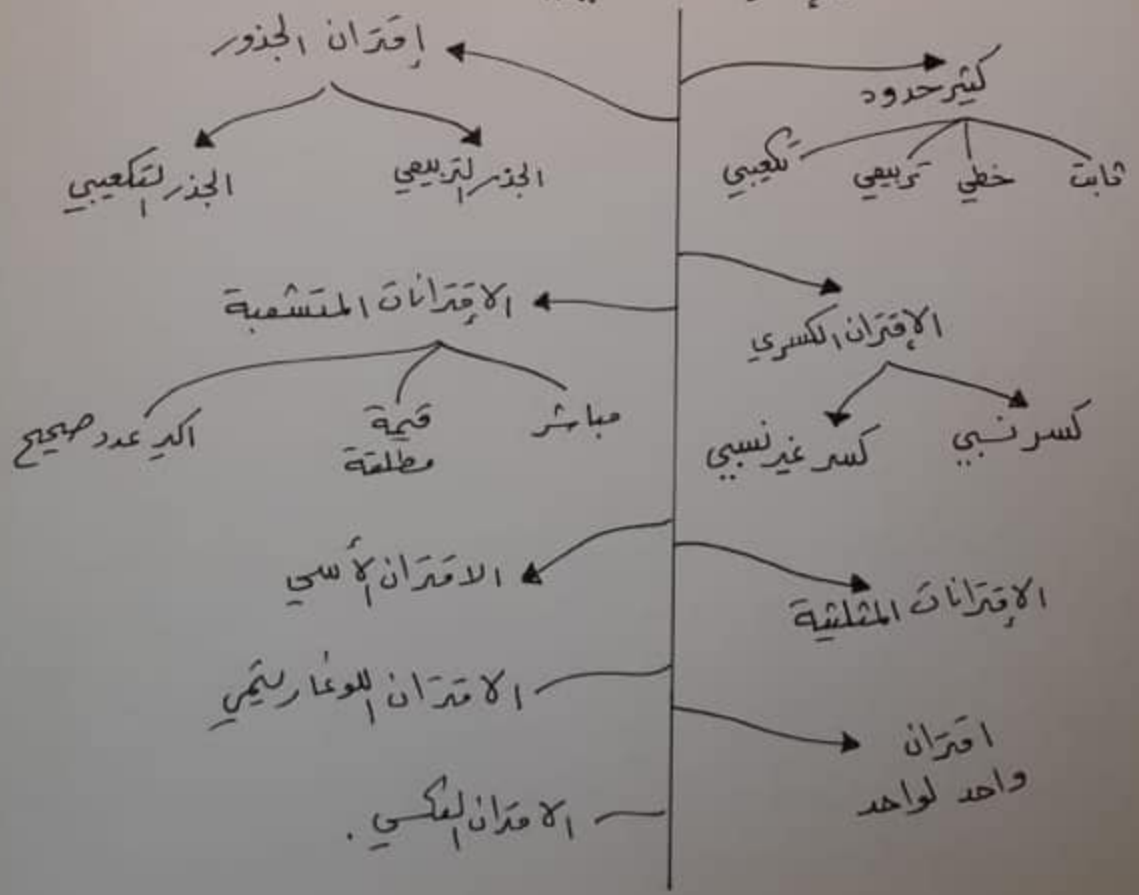 كثير حدود
ثابت خطي تربيعي تكعيبي
الإقتران الكسري
كسر نسبي كسر غير نسبي
الإقترانات المثلثية
اقتران
واحد لواحد
إقتران الجذور
الجذر التربيعي الجذر التكعيبي
الإقترانات المتشعبة
مباشر قيمة اكبر عدد صحيح
مطلقة
الاقتران الأسي
الاقتران اللوغاريتمي
الاقتران العكسي .